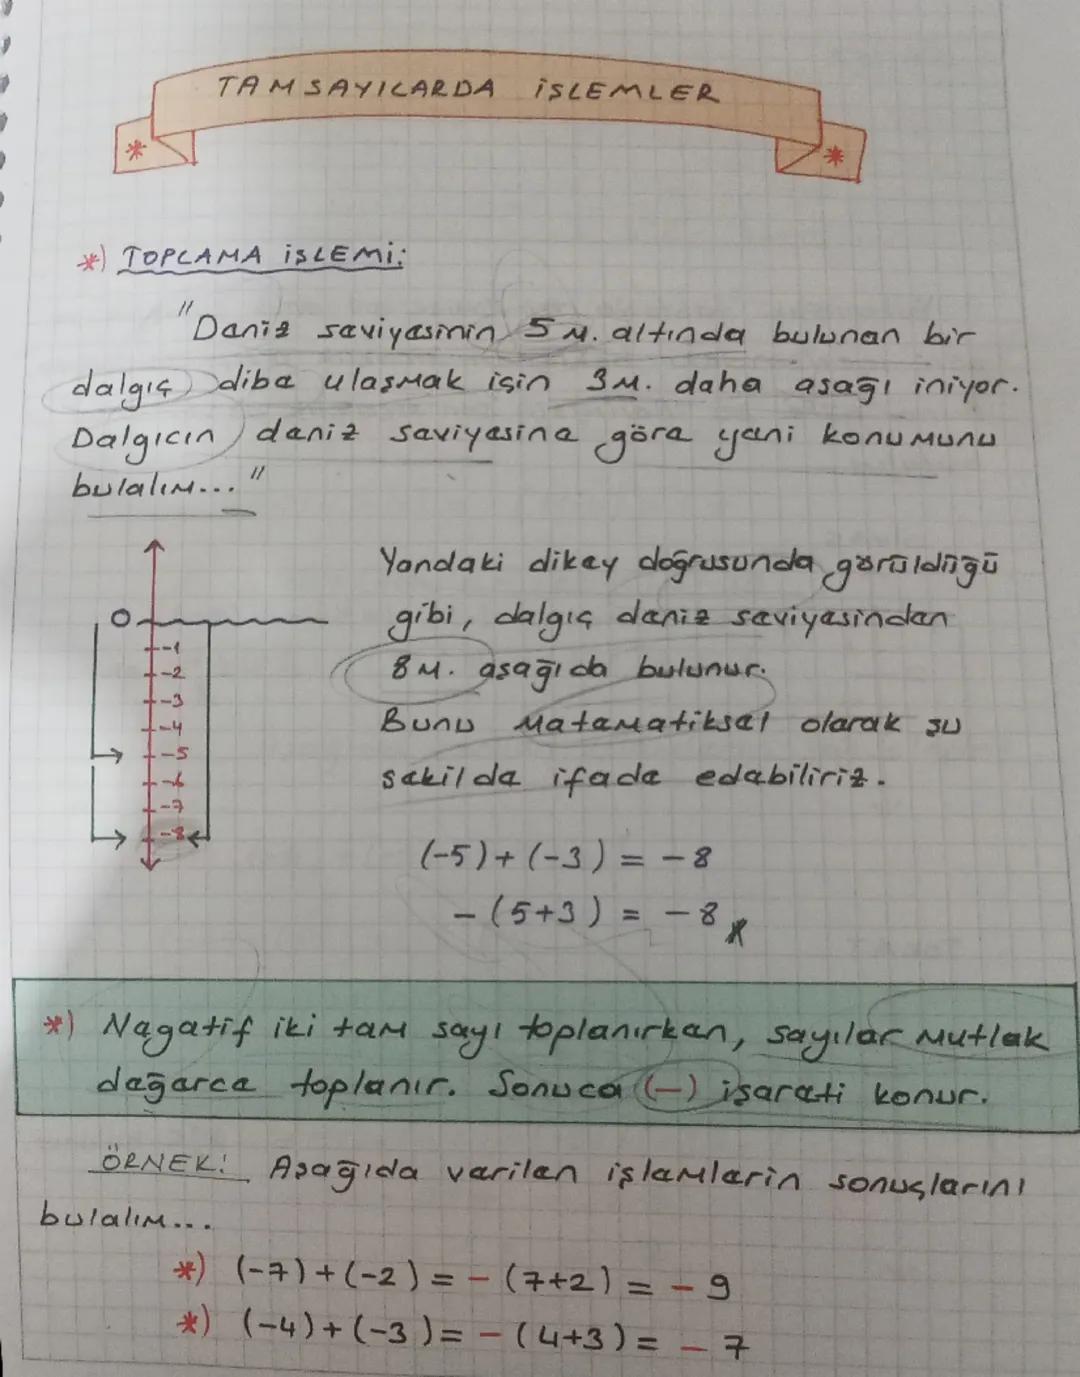 TAMSAYILARDA İŞLEMLER
*) TOPLAMA İŞLEMİ:
"Deniz seviyesinin 5 M. altında bulunan bir
dalgıç dibe ulaşmak için 3 M. daha aşağı iniyor.
Dalgıcın deniz seviyesine göre yeni konumunu
bulalım..."
Yandaki dikey doğrusunda görüldüğü
gibi, dalgıç deniz seviyesinden
8 M. aşağıda bulunur.
Bunu matematiksel olarak şu
şekilde ifade edebiliriz.
0
-1
-2
-3
-4
-5
-6
-7
-8
(-5)+(-3) = -8
-(5+3) = -8
*) Negatif iki tam sayı toplanırken, sayılar mutlak
değerce toplanır. Sonuca (-) işareti konur.
ÖRNEK: Aşağıda verilen işlemlerin sonuçlarını
bulalım...
*) (-7)+(-2) = -(7+2) = -9
*) (-4)+(-3) = -(4+3) = -7